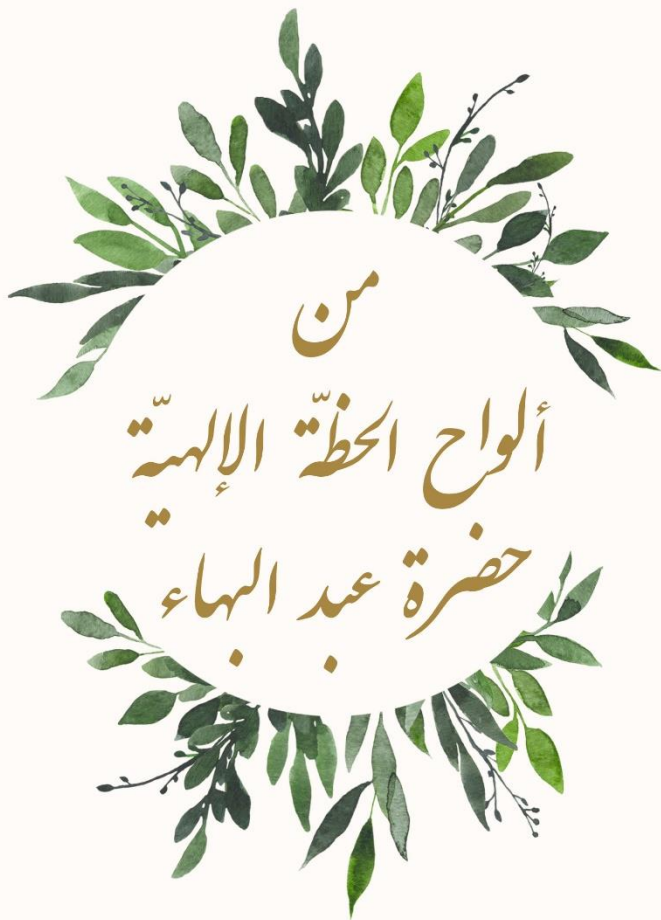 من
ألواح الخطّة الإلهيّة
حضرة عبد البهاء